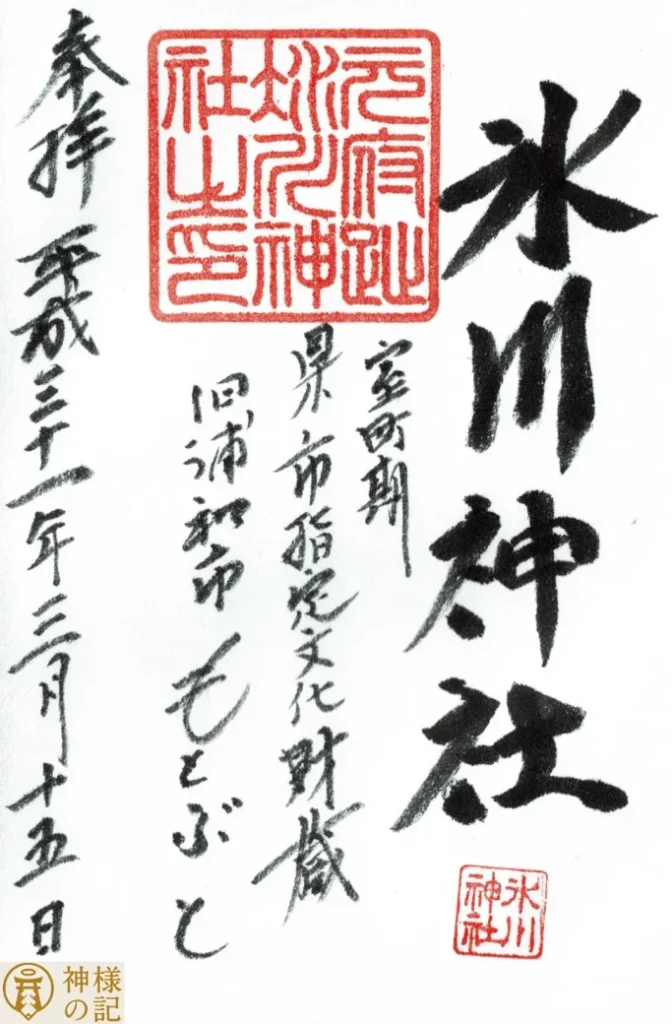 氷川神社
氷川
神社
元府趾
氷川神
社之印
室町期
県市指定文化財蔵
旧浦和市もとぶと
奉拝 平成三十一年三月十五日
神様
の記